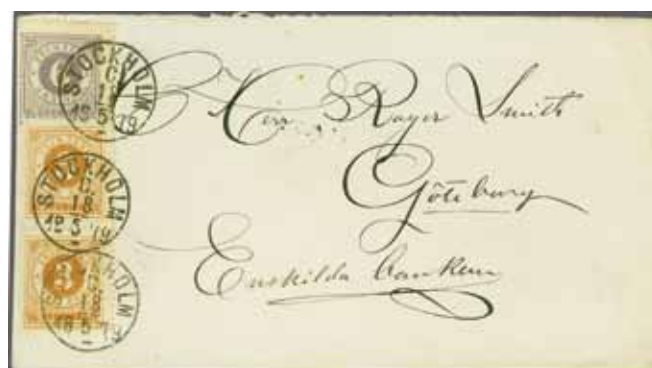 STOCKHOLM
C.
18
5
79
STOCKHOLM
C.
18
5
79
STOCKHOLM
18
5
79
Herr Roger Smith
Göteborg
Enskilda banken